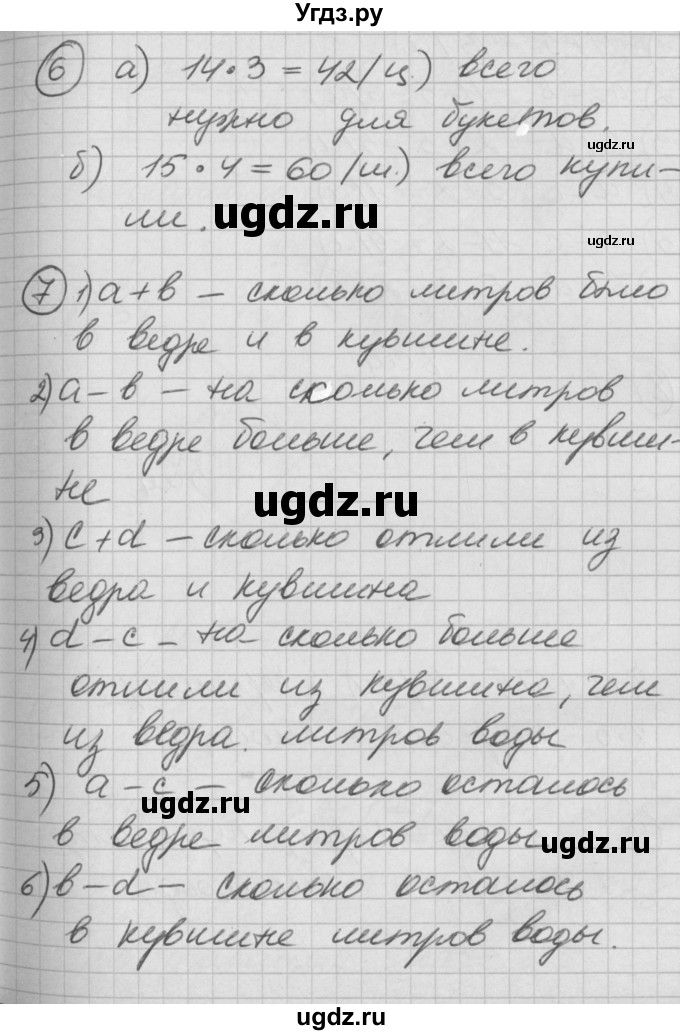 Угдз.ру
6 а) 14·3=42(ц.) всего
нужно для букетов.
ugdz.ru
б) 15·4=60(ш.) всего купи-
ли.
ugdz.ru
ugdz.ru
7 1) a+b – сколько литров было
в ведре и в кувшине.
2) a–b – на сколько литров
в ведре больше, чем в кувши-
не
ugdz.ru
3) c+d – сколько отлили из
ведра и кувшина
4) d–c – на сколько больше
отлили из кувшина, чем
из ведра. литров воды
5) a–c – сколько осталось
ugdz.ru
в ведре литров воды
ugdz.ru
6) b–d – сколько осталось
в кувшине литров воды.
ugdz.ru